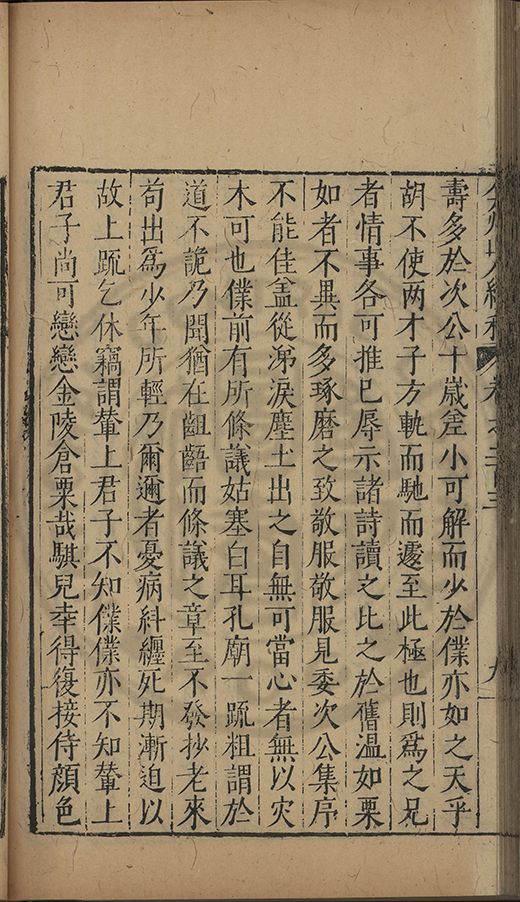 壽多於次公十歲差小可解而少於僕亦如之天乎
胡不使两才子方軌而馳而遽至此極也則爲之兄
者情事各可推已辱示諸詩讀之比之於舊溫如栗
如者不異而多琢磨之致敬服敬服見委次公集序
不能佳盖從涕淚塵土出之自無可當心者無以灾
木可也僕前有所條議姑塞白耳孔廟一䟽粗謂於
道不詭乃聞猶在齟齬而條議之章至不發抄老來
苟出爲少年所輕乃爾邇者憂病糾纏死期漸迫以
故上䟽乞休竊謂輦上君子不知僕僕亦不知輦上
君子尚可戀戀金陵倉粟哉騏兒幸得復接侍顔色